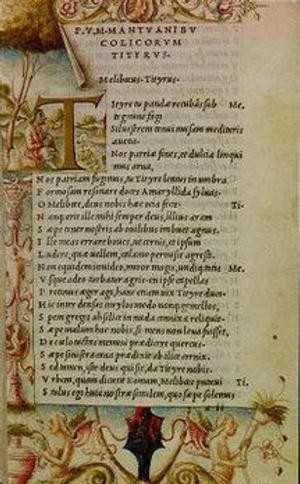 P.V.M. MANTVANI BV
COLICORVM
TITYRVS.
Meliboeus. Tityrus.
Tityre tu patulæ recubās sub Me.
tegmine fagi
Siluestrem tenui musam meditaris
auena
Nos patriæ fines, et dulcia linqui
mus arua,
Nos patriam fugimus, tu Tityre lentus in umbra
Formosam resonare doces Amaryllida syluas.
O Meliboee, deus nobis hæc ocia fecit. Ti.
Nanque erit ille mihi semper deus, illius aram
Sæpe tener nostris ab ouilibus imbuet agnus.
Ille meas errare boues, ut cernis, et ipsum
Ludere, quæ uellem, calamo permisit agresti.
Non equidem inuideo, miror magis, undique totis Me.
Vsque adeo turbatur agris. en ipse capellas
Protenus æger ago, hanc etiam uix Tityre duco.
Hic inter densas corylos modo nanque gemellos,
Spem gregis ah silice in nuda connixa reliquit.
Sæpe malum hoc nobis, si mens non læua fuisset,
De coelo tactas memini prædicere quercus.
Sæpe sinistra caua prædixit ab ilice cornix.
Sed tamen, iste deus qui sit, da Tityre nobis.
Vrbem, quam dicunt Romam, Meliboee putaui Ti.
Stultus ego huic nostræ similem, quo sæpe solemus